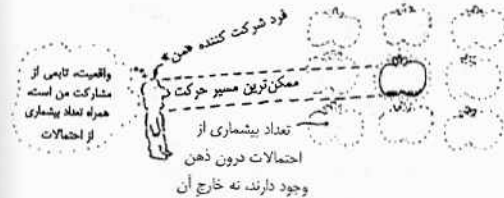 فرد شرکت کننده «من»
واقعیت، تابعی از
مشارکت من است،
همراه تعداد بیشماری
از احتمالات
ممکن‌ترین مسیر حرکت
تعداد بیشماری از
احتمالات درون ذهن
وجود دارند، نه خارج آن